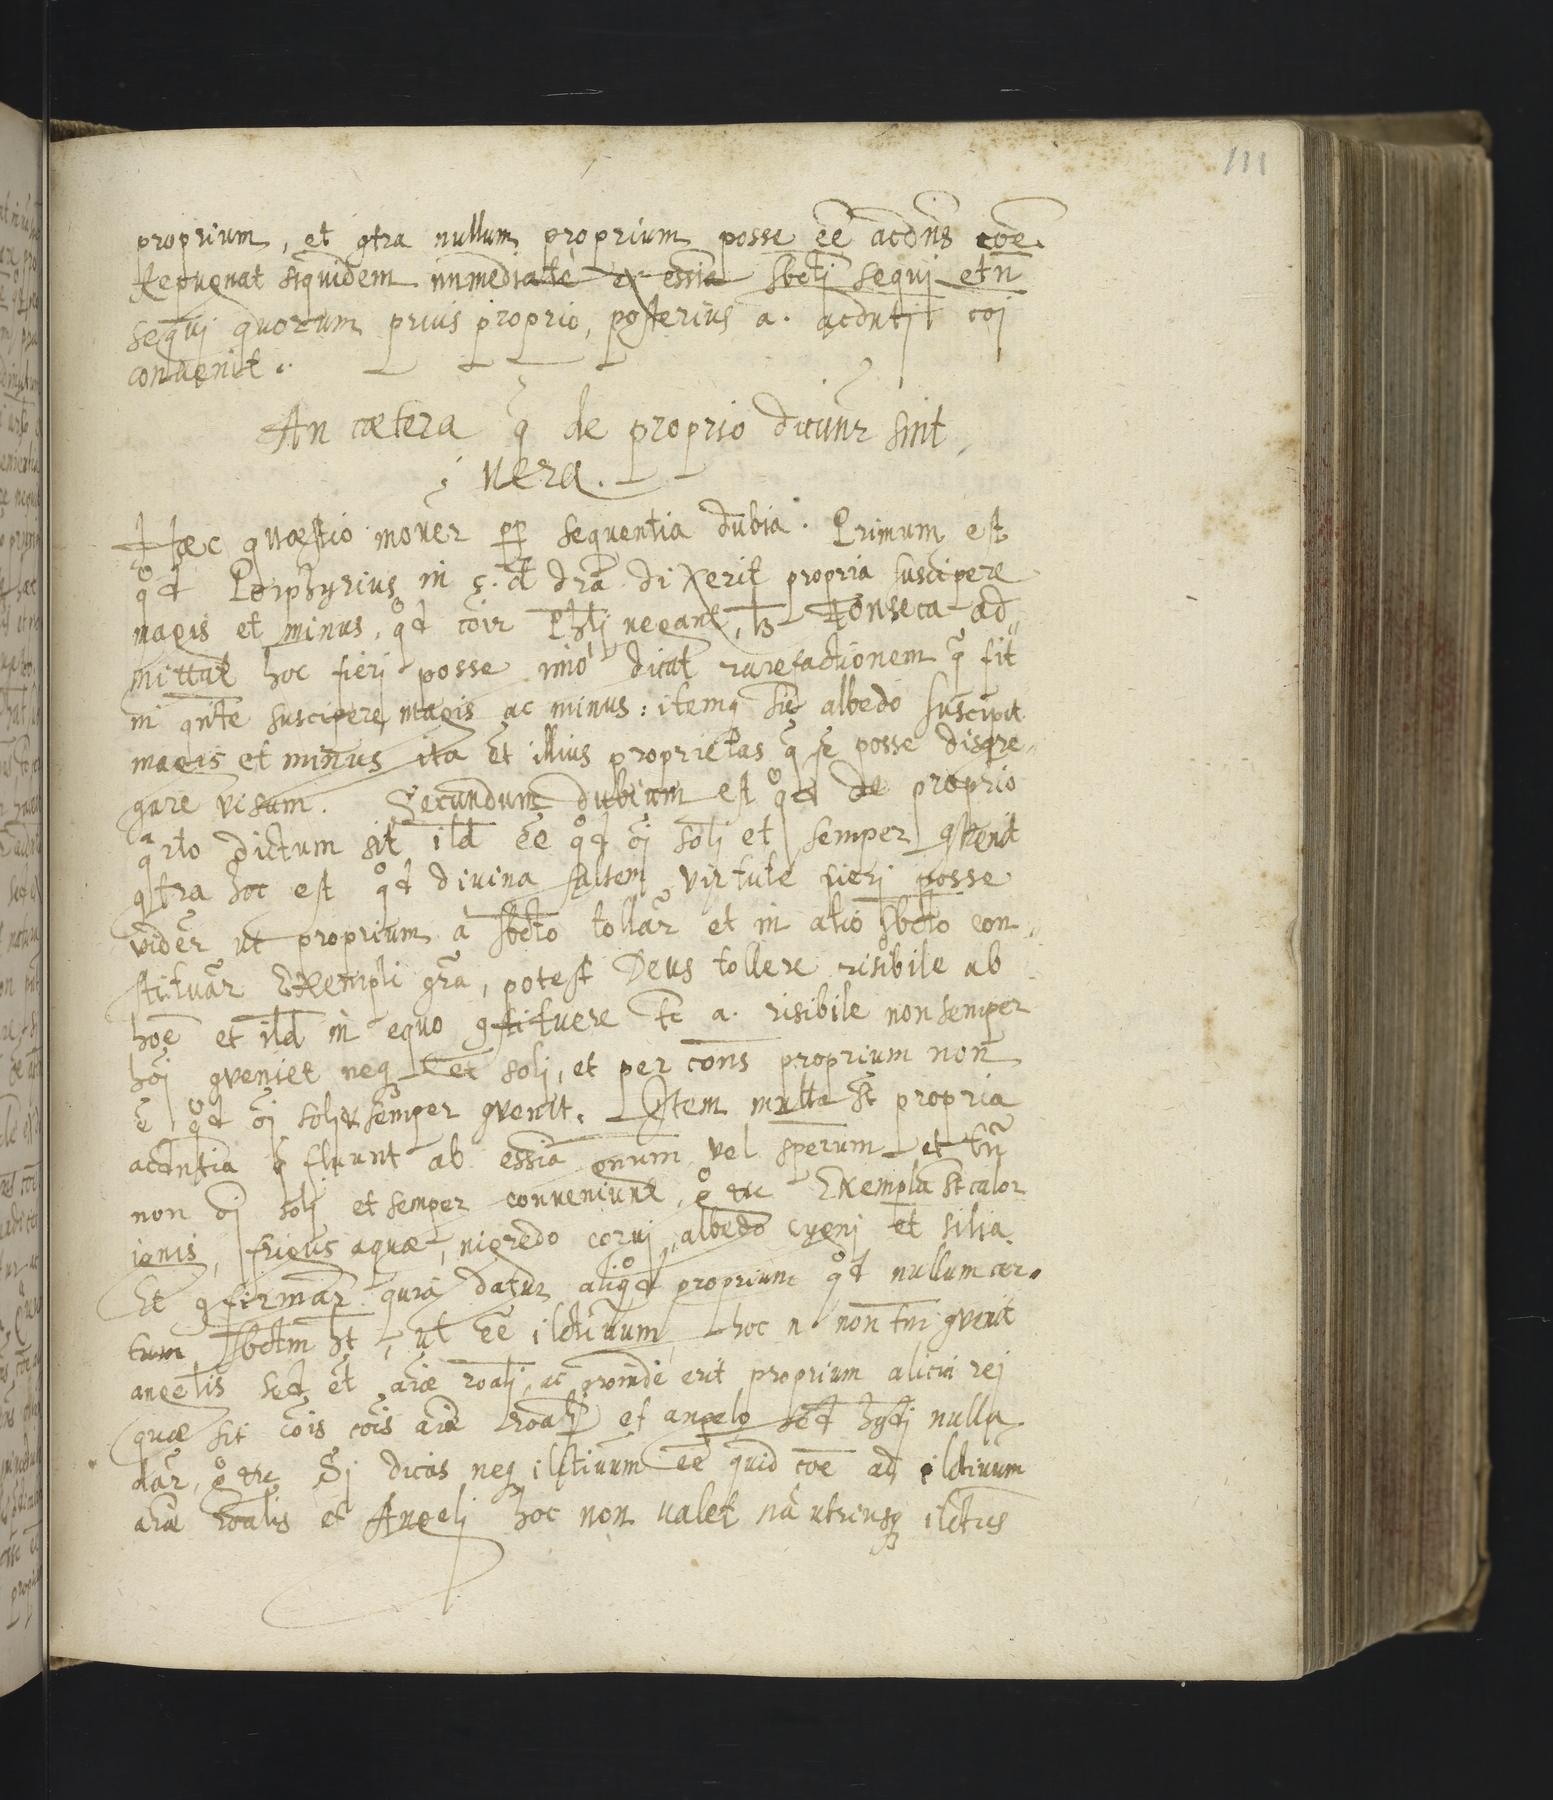 111
proprium, et gtra nullum proprium posse eē acdn̄s coē.
Repugnat siquidem immediatè ex essīa sbcti sequi et n̄
sequi quorum prius proprio, posterius a. acdnti coi
conuenit.
An cætera q̄ de proprio dicunr sint
uera.
Hæc quæstio mouer pp sequentia dubia. Primum est
qd Porphyrius in c. d dr̄a dixerit propria suscipere
magis et minus, qd coir Phl̄i negant, lz Fonseca ad„
mittat hoc fieri posse imò dicat rarefactionem q̄ fit
in qn̄te suscipere magis ac minus: itemq sic albedo suscipit
magis et minus ita et illius proprietas q̄ ē posse disgre„
gare uisum. Secundum dubium est qd de proprio
qrto dictum sit ild eē qd oi soli et semper gvenit
gtra hoc est qd divina saltem virtute fieri posse
vider̄ ut proprium a sbcto tollar̄ et in alio sbcto con„
stituar̄ Exempli gr̄a, potest Deus tollere risibile ab
hoē et ild in equo gstituere tc a. risibile non semper
hoi gveniet neq et soli, et per con̄s proprium non
ē qd oi soli & semper gvenit. Item multa st propria
acdn̄tia q̄ fluunt ab essīa gnum vel sperum et tn̄
non oi soli et semper conveniunt, g &c Exempla st calor
ignis, frigus aquæ, nigredo corui, albedo cygni et lilia.
Et gfirmar̄ quia datur aliqd proprium qd nullum cer„
tum sbctm ht, ut eē ilctiuum, hoc n. non tm gvenit
angelis sed et aīæ roāli, ac proinde erit proprium alicui rei
quæ sit cōis cōis aīæ roāli et angelo sed hyti nulla
dar̄, g &c Si dicas neq ilctiuum eē quid coē ad ilctiuum
aīæ roālis et Angeli hoc non ualet nā utriusq ilctus